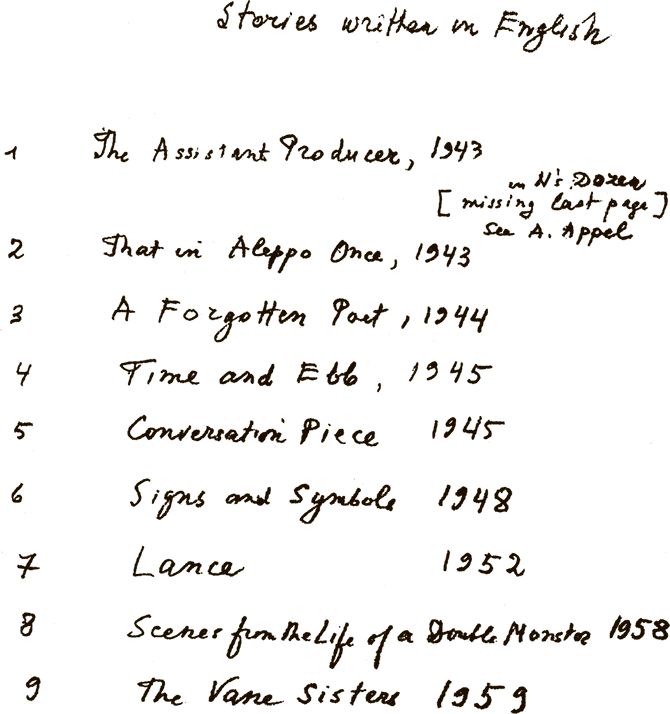 Stories written in English
1 The Assistant Producer, 1943
in N's Dozen
[missing last page]
See A. Appel
2 That in Aleppo Once, 1943
3 A Forgotten Poet, 1944
4 Time and Ebb, 1945
5 Conversation Piece 1945
6 Signs and Symbols 1948
7 Lance 1952
8 Scenes from the Life of a Double Monster 1958
9 The Vane Sisters 1959